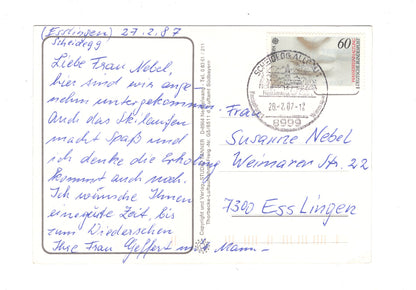 (Esslingen) 27.2.87
Scheidegg
Liebe Frau Nebel,
hier sind wir ange-
nehm untergekommen.
Auch das Skilaufen
macht Spaß und
ich denke die Erholung
kommt auch noch.
Ich wünsche Ihnen
eine gute Zeit, bis
zum Wiedersehen
Ihre Frau Geffert u. Mann -
Copyright und Verlag
SCHEIDEGG, ALLGÄU
28.-2.87-12
8999
60
DEUTSCHE BUNDESPOST
Frau
Susanne Nebel
Weimarer Str. 22
7300 Esslingen